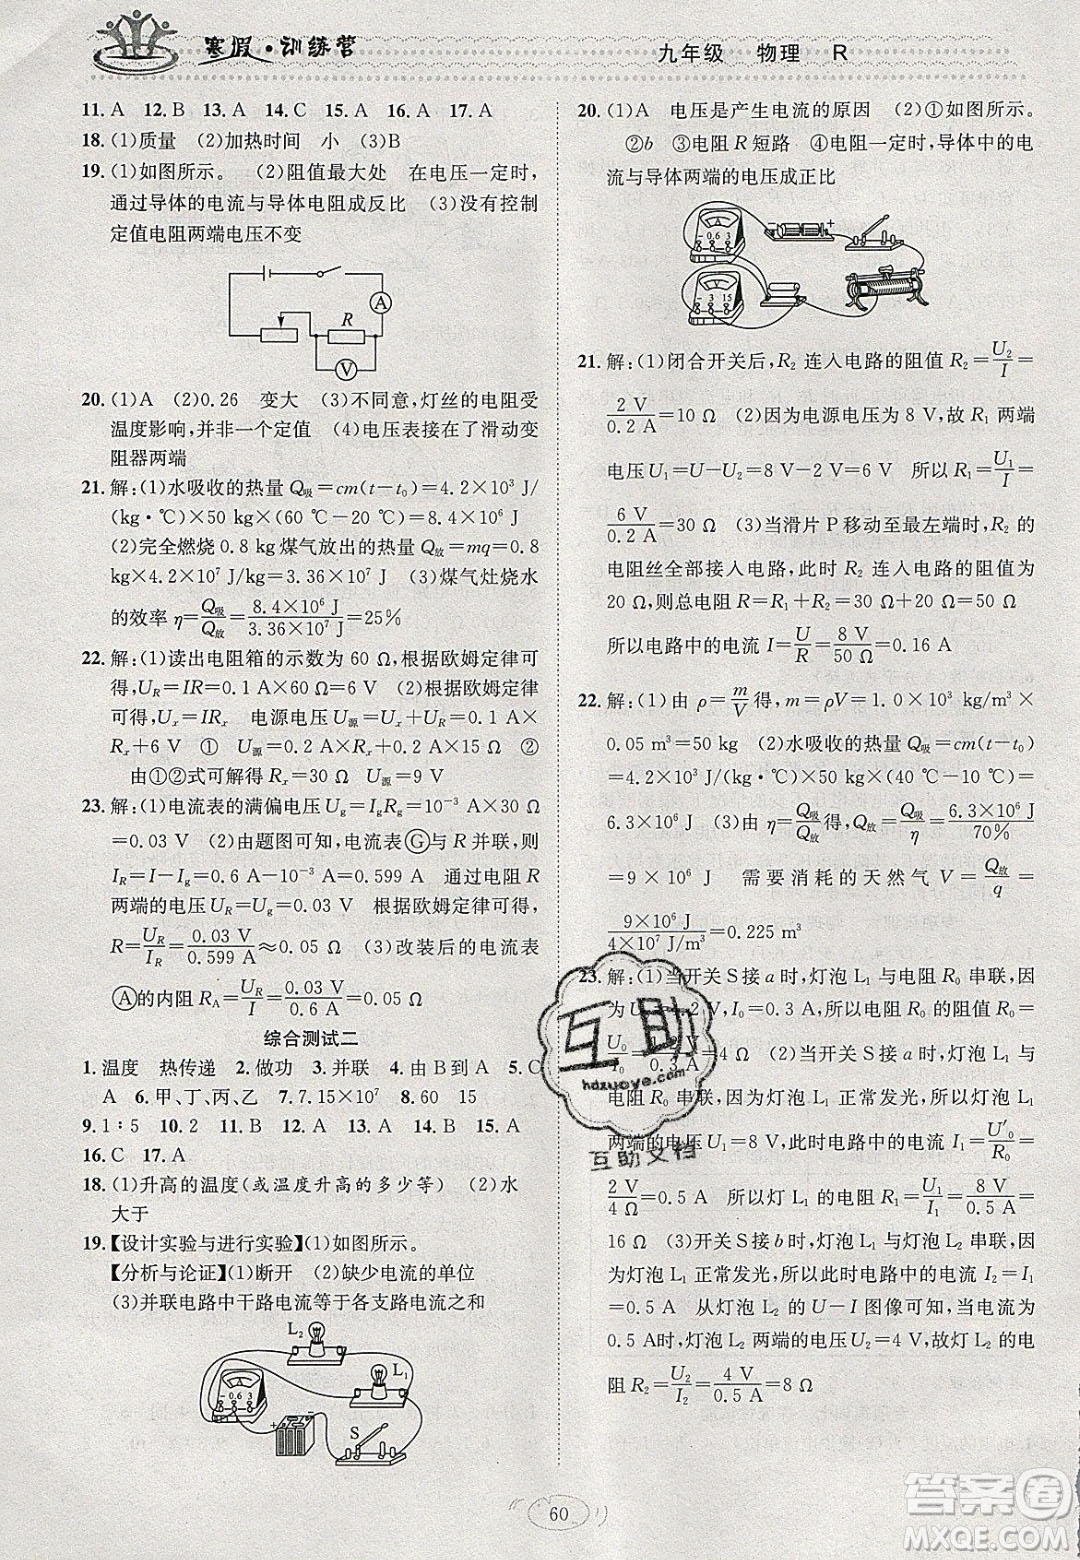 寒假·训练营
九年级 物理 R
11. A 12. B 13. A 14. C 15. A 16. A 17. A
18. (1)质量 (2)加热时间 小 (3)B
19. (1)如图所示。 (2)阻值最大处 在电压一定时,
通过导体的电流与导体电阻成反比 (3)没有控制
定值电阻两端电压不变
A
R
V
20. (1)A (2)0.26 变大 (3)不同意,灯丝的电阻受
温度影响,并非一个定值 (4)电压表接在了滑动变
阻器两端
21. 解:(1)水吸收的热量 Q吸=cm(t-t₀)=4.2×10³ J/
(kg·℃)×50 kg×(60 ℃-20 ℃)=8.4×10⁶ J
(2)完全燃烧 0.8 kg煤气放出的热量 Q放=mq=0.8
kg×4.2×10⁷ J/kg=3.36×10⁷ J (3)煤气灶烧水
的效率 η=Q吸/Q放=8.4×10⁶ J/3.36×10⁷ J=25%
22. 解:(1)读出电阻箱的示数为 60 Ω,根据欧姆定律可
得,U_R=IR=0.1 A×60 Ω=6 V (2)根据欧姆定律
可得,U_x=IR_x 电源电压 U源=U_x+U_R=0.1 A×
R_x+6 V ① U源=0.2 A×R_x+0.2 A×15 Ω ②
由①②式可解得 R_x=30 Ω U源=9 V
23. 解:(1)电流表的满偏电压 U_g=I_gR_g=10⁻³ A×30 Ω
=0.03 V (2)由题图可知,电流表Ⓖ与 R 并联,则
I_R=I-I_g=0.6 A-10⁻³ A=0.599 A 通过电阻 R
两端的电压 U_R=U_g=0.03 V 根据欧姆定律可得,
R=U_R/I_R=0.03 V/0.599 A≈0.05 Ω (3)改装后的电流表
Ⓐ的内阻 R_A=U_R/I=0.03 V/0.6 A=0.05 Ω
综合测试二
1. 温度 热传递 2. 做功 3. 并联 4. 由 B 到 A 5. C
A 6. 甲、丁、丙、乙 7. 7. 15×10⁴ 8. 60 15
9. 1∶5 10. 2 11. D 12. B 13. C 14. B 15. A
16. C 17. A
18. (1)升高的温度(或温度升高的多少等) (2)水
大于
19. 【设计实验与进行实验】(1)如图所示。
【分析与论证】(1)断开 (2)缺少电流的单位
(3)并联电路中干路电流等于各支路电流之和
L₂
L₁
- 0.6 3
S
20. (1)A 电压是产生电流的原因 (2)①如图所示。
②b ③电阻 R 短路 ④电阻一定时,导体中的电
流与导体两端的电压成正比
- 0.6 3
- 3 15
21. 解:(1)闭合开关后,R₂ 连入电路的阻值 R₂=U₂/I=
2 V/0.2 A=10 Ω (2)因为电源电压为 8 V,故 R₁ 两端
电压 U₁=U-U₂=8 V-2 V=6 V 所以 R₁=U₁/I=
6 V/0.2 A=30 Ω (3)当滑片 P 移动至最左端时,R₂ 的
电阻丝全部接入电路,此时 R₂ 连入电路的阻值为
20 Ω,则总电阻 R=R₁+R₂=30 Ω+20 Ω=50 Ω
所以电路中的电流 I=U/R=8 V/50 Ω=0.16 A
22. 解:(1)由 ρ=m/V得,m=ρV=1.0×10³ kg/m³×
0.05 m³=50 kg (2)水吸收的热量 Q吸=cm(t-t₀)
=4.2×10³ J/(kg·℃)×50 kg×(40 ℃-10 ℃)=
6.3×10⁶ J (3)由 η=Q吸/Q放得,Q放=Q吸/η=6.3×10⁶ J/70%
=9×10⁶ J 需要消耗的天然气 V=Q放/q=
9×10⁶ J/4×10⁷ J/m³=0.225 m³
23. 解:(1)当开关 S 接 a 时,灯泡 L₁ 与电阻 R₀ 串联,因
为 U₀=1.2 V,I₀=0.3 A,所以,定值电阻的阻值 R₀=
U₀/I₀=1.2 V/0.3 A=4 Ω (2)当开关 S 接 a 时,灯泡 L₁ 与
电阻 R₀ 串联,因为灯泡 L₁ 正常发光,所以,灯泡 L₁
两端的电压 U₁=8 V,此时电路中的电流 I₁=U′₀/R₀=
2 V/4 Ω=0.5 A 所以灯 L₁ 的电阻 R₁=U₁/I₁=8 V/0.5 A=
16 Ω (3)开关 S 接 b 时,灯泡 L₁ 与灯泡 L₂ 串联,灯
泡 L₁ 正常发光,所以此时电路中的电流 I₂=I₁
=0.5 A 从灯泡 L₂ 的 U-I 图像可知,当电流为
0.5 A时,灯泡 L₂ 两端的电压 U₂=4 V,故灯 L₂ 的电
阻 R₂=U₂/I₂=4 V/0.5 A=8 Ω
互助
hdzuoye.com
互助文档
60
答案圈
MXQE.COM